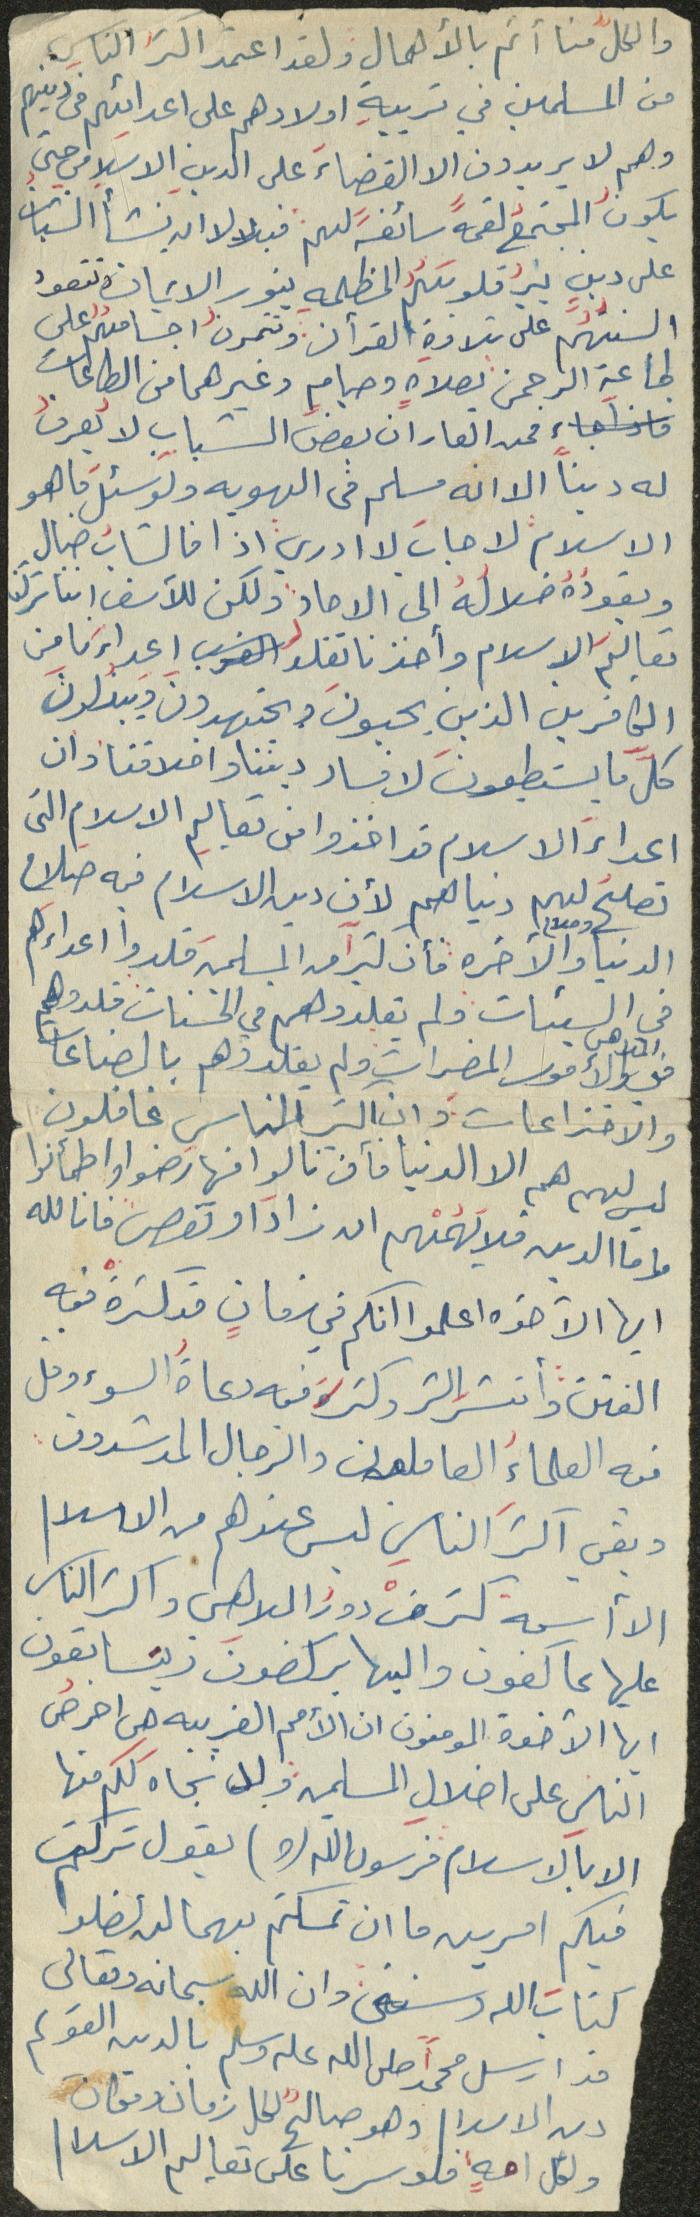 والكلُّ منا أثم بالأهمال ولقد اعتمد اكثرُ الناسِ
من المسلمين في تربيةِ اولادهم على اعدائهم في دينهم
وهم لا يريدون الا القضاءَ على الدين الاسلامي حتى
يكونَ المجتمعُ لقمةً سائغةً لهم فبلا لا ان ينشأ الشبابُ
على دينٍ ينيرُ قلوبَهُم المظلمه بنور الايمان وتتعود
السنتُهُم على تلاوةِ القرأن وتتمرنُ اجسامهُم على
طاعةِ الرحمن بصلاةٍ وصيامٍ وغيرهما من الطاعات
فمن العار ان بعضَ الشبابِ لا يُعرفُ
له ديناً الا انه مسلم في الهويه ولو سئل ما هو
الاسلام لاجابَ لا ادري اذا فالشابُ جبال
ويقودُهُ ضلالُهُ الى الالحاد ولكن للأسف اننا تركنا
تعاليمَ الاسلام وأخذنا نقلد اعداءَنا من
الكافرين الذين يحبونَ ويجتهدونَ ويبذلونَ
كلَّ ما يستطيعونَ لافساد ديننا واخلاقنا وان
اعداءَ الاسلام قد اخذوا من تعاليمِ الاسلام التى
تصلحُ لهم دنياهم لأن دين الاسلام فيه صلاح
الدنيا وصلاح والأخره فأن كثيراً من المسلمين قلدوا اعداءَهم
في السيئات ولم يقلدوهم في الحسنات قلدوهم
في الملاهي والأمور المضراتِ ولم يقلدوهم بالصناعات
والاختراعات وان اكثر الناس غافلون
ليس لهم هم الا الدنيا فأن نالوا منها رضوا واطمأنوا
واما الدين فلا يَهُمُهم ان زادَ او نقص فانا لله
ايها الأخوه اعلموا انكم في زمانٍ قد كثرةْ فيه
الفتنُ وأنتشرَ الشر وكثرةْ فيه دعاةُ السوء وقل
فيه العلماءُ العاملون والرجال المرشدون
وبقي اكثرُ الناسِ ليس عندهم من الاسلام
الا أسمه كثرةْ دورُ الملاهي واكثر الناس
عليها عاكفون واليها يركضونَ ويتسابقون
ايها الأخوة المومنون ان الأمم الغربيه هى احرصُ
الناسِ على اضلالِ المسلمين ولا نجاه لكم منها
الا بالاسلام فرسول الله (ص) يقول تركت
فيكم امرين ما ان تمسكتم بهما لن تضلوا
كتابَ الله وسنتي وان الله سبحانه وتعالى
قد ارسل محمداً صلى الله عليه وسلم بالدين القويم
دين الاسلام وهو صالحٌ لكل زمان ومكان
ولكل امةٍ فلو سرنا على تعاليم الاسلام